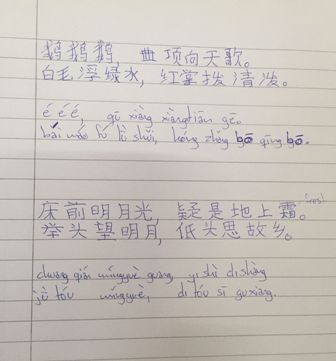 鹅鹅鹅，曲项向天歌。
白毛浮绿水，红掌拨清泼。
é é é, qū xiàng xiàngtiān gē。
bái máo fú lǜ shuǐ, hóng zhǎng bō qīng bō.
床前明月光，疑是地上霜。frost
举头望明月，低头思故乡。
chuang qián míngyuè guang, yi shì dìshàng
jǔ tóu míngyuè, dī tóu sī gù xiang.